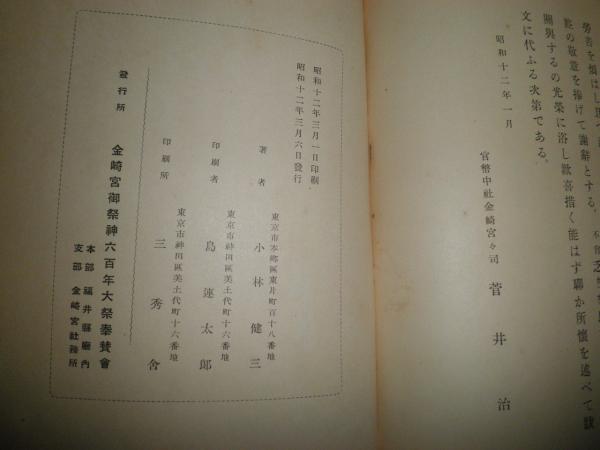 勞苦を煩はし
甚の敬意を捧げて謝辭とする。
關與するの光榮に浴し歡喜措く能はず聊か所懷を述べて跋
文に代ふる次第である。
昭和十二年一月
官幣中社金崎宮々司 菅井治
昭和十二年三月一日印刷
昭和十二年三月六日發行
東京市本鄕區東片町百十八番地
著者 小林健三
東京市神田區美土代町十六番地
印刷者 島連太郎
東京市神田區美土代町十六番地
印刷所 三秀舍
發行所 金崎宮御祭神六百年大祭奉賛會
本部 福井縣廳內
支部 金崎宮社務所